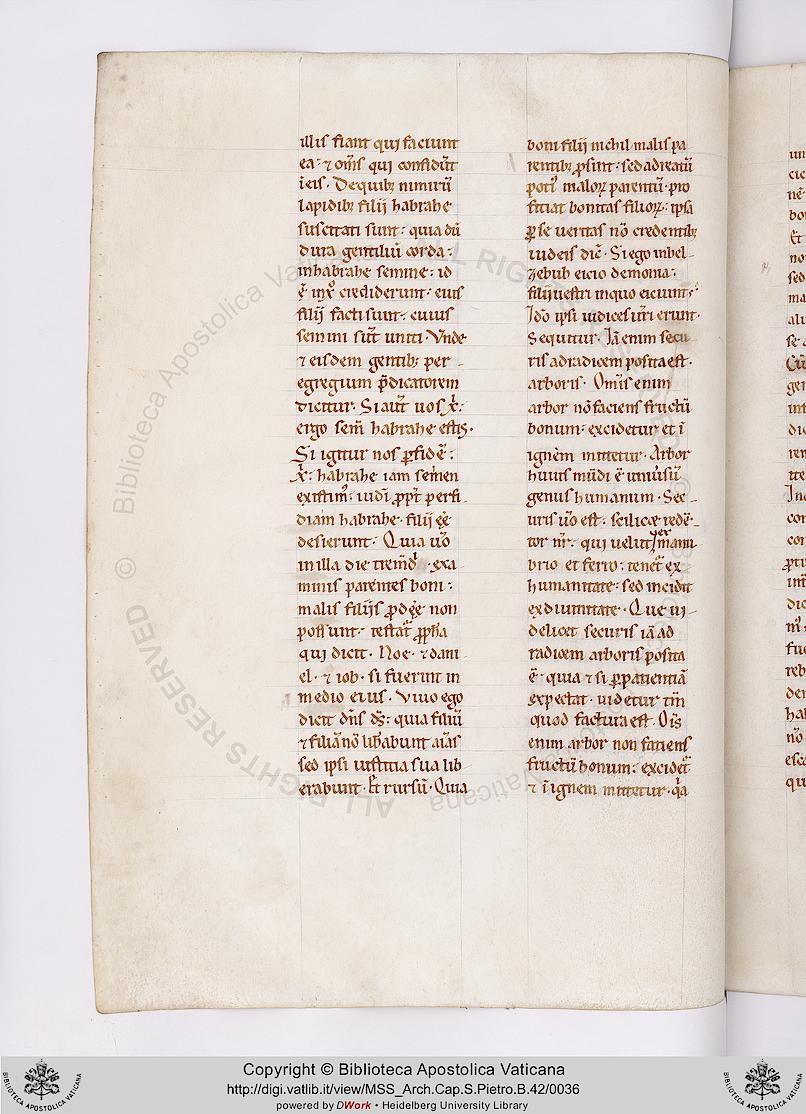 illis fiant qui faciunt
ea: ⁊ om̄s qui confidūt
ī eis. De quibꝫ nimirū
lapidibꝫ filij habrahe
suscitati sunt: quia dū
dura gentiliū corda:
in habrahe semine: id
ē in xp̄o crediderunt: eius
filij facti sunt: cuius
semini sūt uniti. Vnde
⁊ eisdem gentibꝫ per
egregium p̄dicatorem
dicitur. Si aut̄ uos xp̄i:
ergo sem̄ habrahe estis.
Si igitur nos ꝑ fidē:
xp̄i: habrahe iam semen
existim᷒: iudi ꝓpt̄ perfi
diam habrahe. filij eē
desierunt. Quia u̾o
in illa die trem̄di exa
minis parentes boni:
malis filijs ꝓdeē non
possunt: testat̄ ꝓpħa
qui dicit. Noe. ⁊ dani
el. ⁊ iob. si fuerint in
medio eius. Viuo ego
dicit dn̄s ds̄: quia filiū
⁊ filiā nō lib̄abunt aīas
sed ipsi iustitia sua lib
erabunt. Et rursū. Quia
boni filij nichil malis pa
rentibꝫ ꝓsint: sed ad reatū
poti᷒ maloꝝ parentū. pro
ficiat bonitas filioꝝ: ipsa
ꝑ se ueritas nō credentibꝫ
iudeis dic̄. Si ego in bel
zebub eicio demonia:
filij uestri in quo eiciunt:
Ido̅ ipsi iudices ur̄i erunt.
Sequitur. Iā enim secu
ris ad radicem posita est.
arboris. Omīs enim
arbor nō faciens fructū
bonum: excidetur et ī
ignem mittetur. Arbor
huius mūdi ē uniu̾sū
genus humanum. Sec
uris u̾o est: scilicet redē
tor nr̄: qui uelut ex manu
brio et ferro: tenet̄ ex
humanitate: sed incidit
ex diuinitate. Que ui
delicet securis iā ad
radicem arboris posita
ē: quia ⁊ si ꝑ patientiā
expectat. uidetur tm̄
quod factura est. Oīs
enim arbor non faciens
fructū bonum: excidet̄
⁊ ī ignem mittetur. qꝛ
ALL RIGHTS RESERVED © Biblioteca Apostolica Vaticana
Copyright © Biblioteca Apostolica Vaticana
http://digi.vatlib.it/view/MSS_Arch.Cap.S.Pietro.B.42/0036
powered by DWork • Heidelberg University Library
BIBLIOTECA APOSTOLICA VATICANA
BIBLIOTECA APOSTOLICA VATICANA